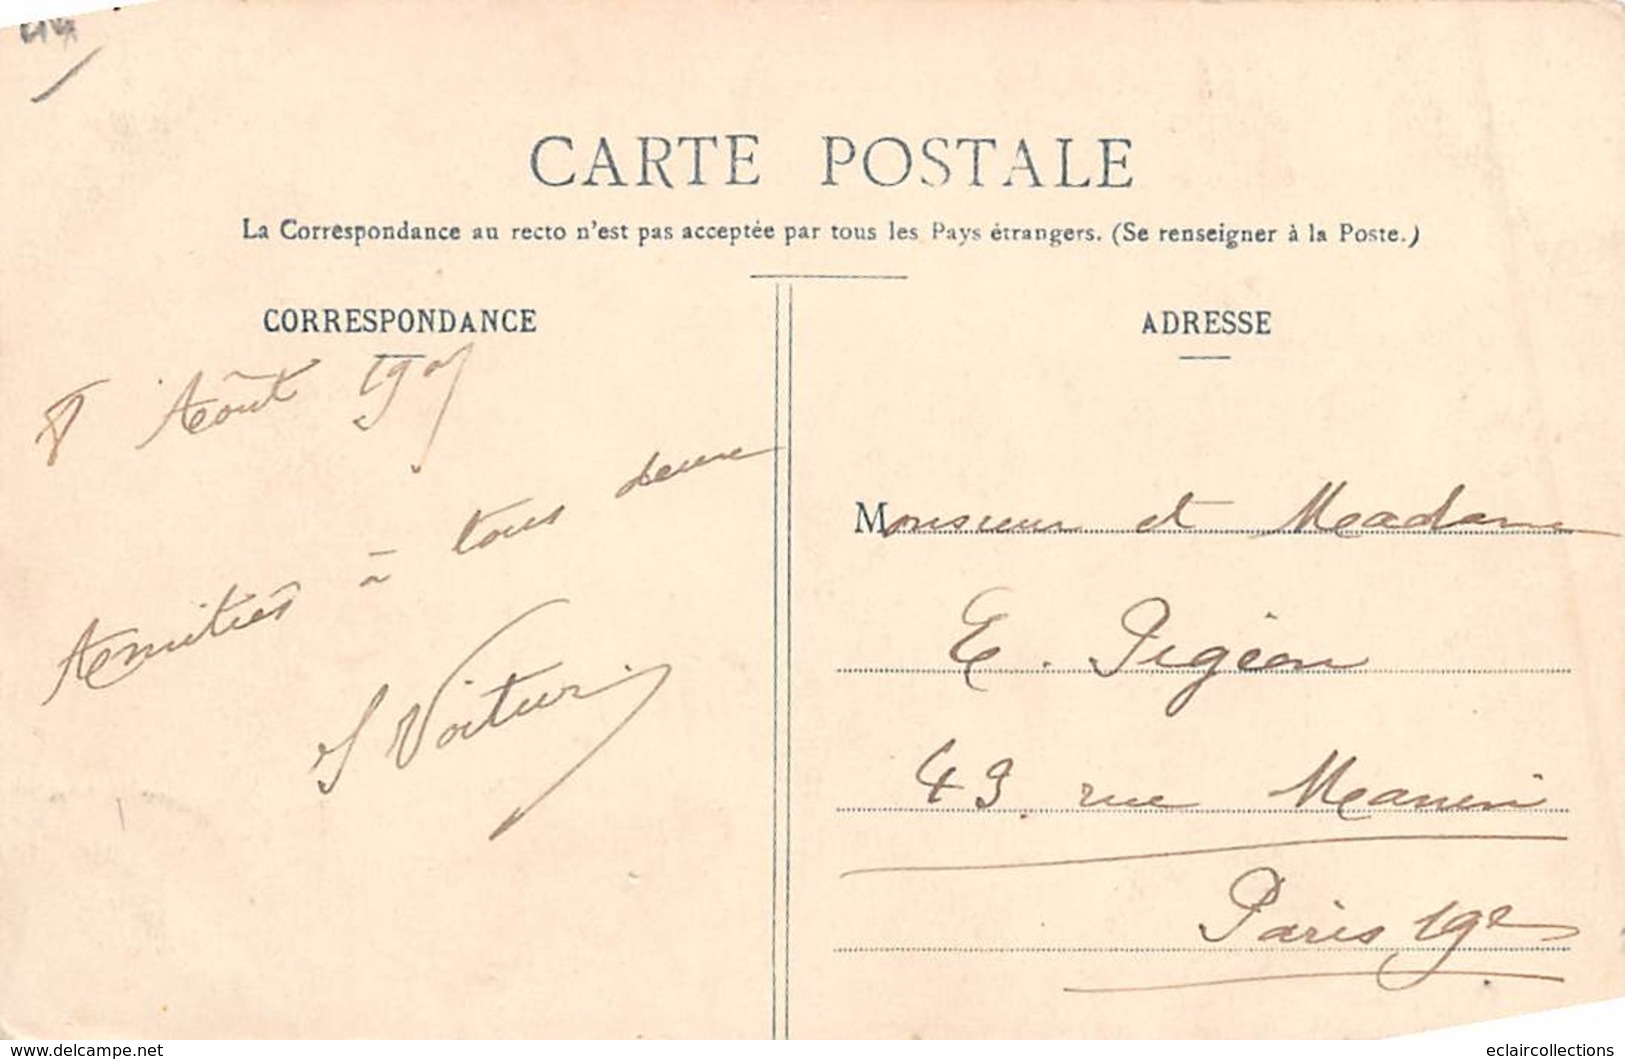 44
CARTE POSTALE
La Correspondance au recto n'est pas acceptée par tous les Pays étrangers. (Se renseigner à la Poste.)
CORRESPONDANCE
8 Août 1907
Amitiés à tous deux
Voitur
ADRESSE
Monsieur et Madame
E. Pigeon
43 rue Manin
Paris 19e
www.delcampe.net
eclaircollections